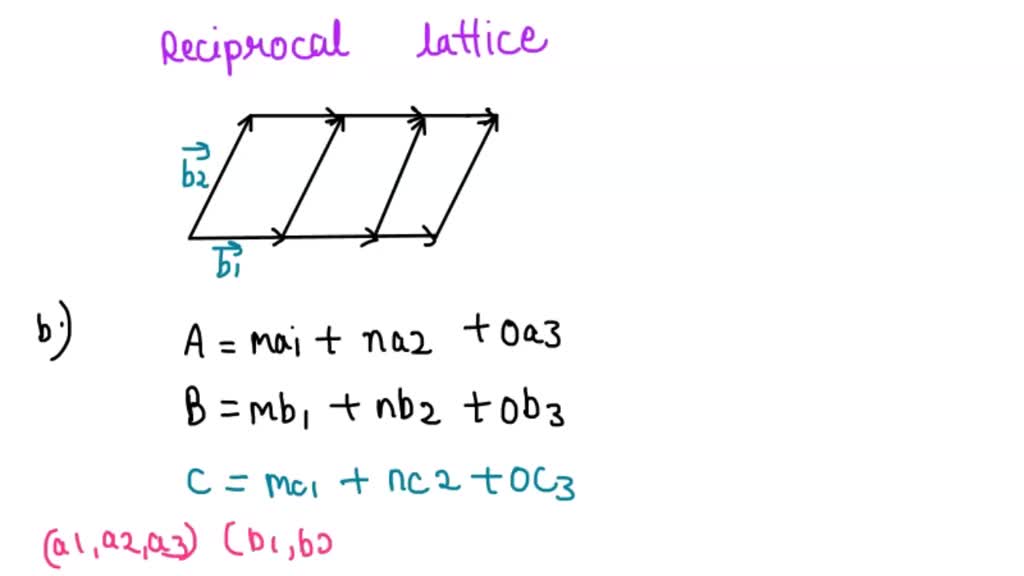 Reciprocal lattice
b2
b1
b.)
A = ma1 + na2 + oa3
B = mb1 + nb2 + ob3
C = mc1 + nc2 + oc3
(a1,a2,a3) (b1,b2